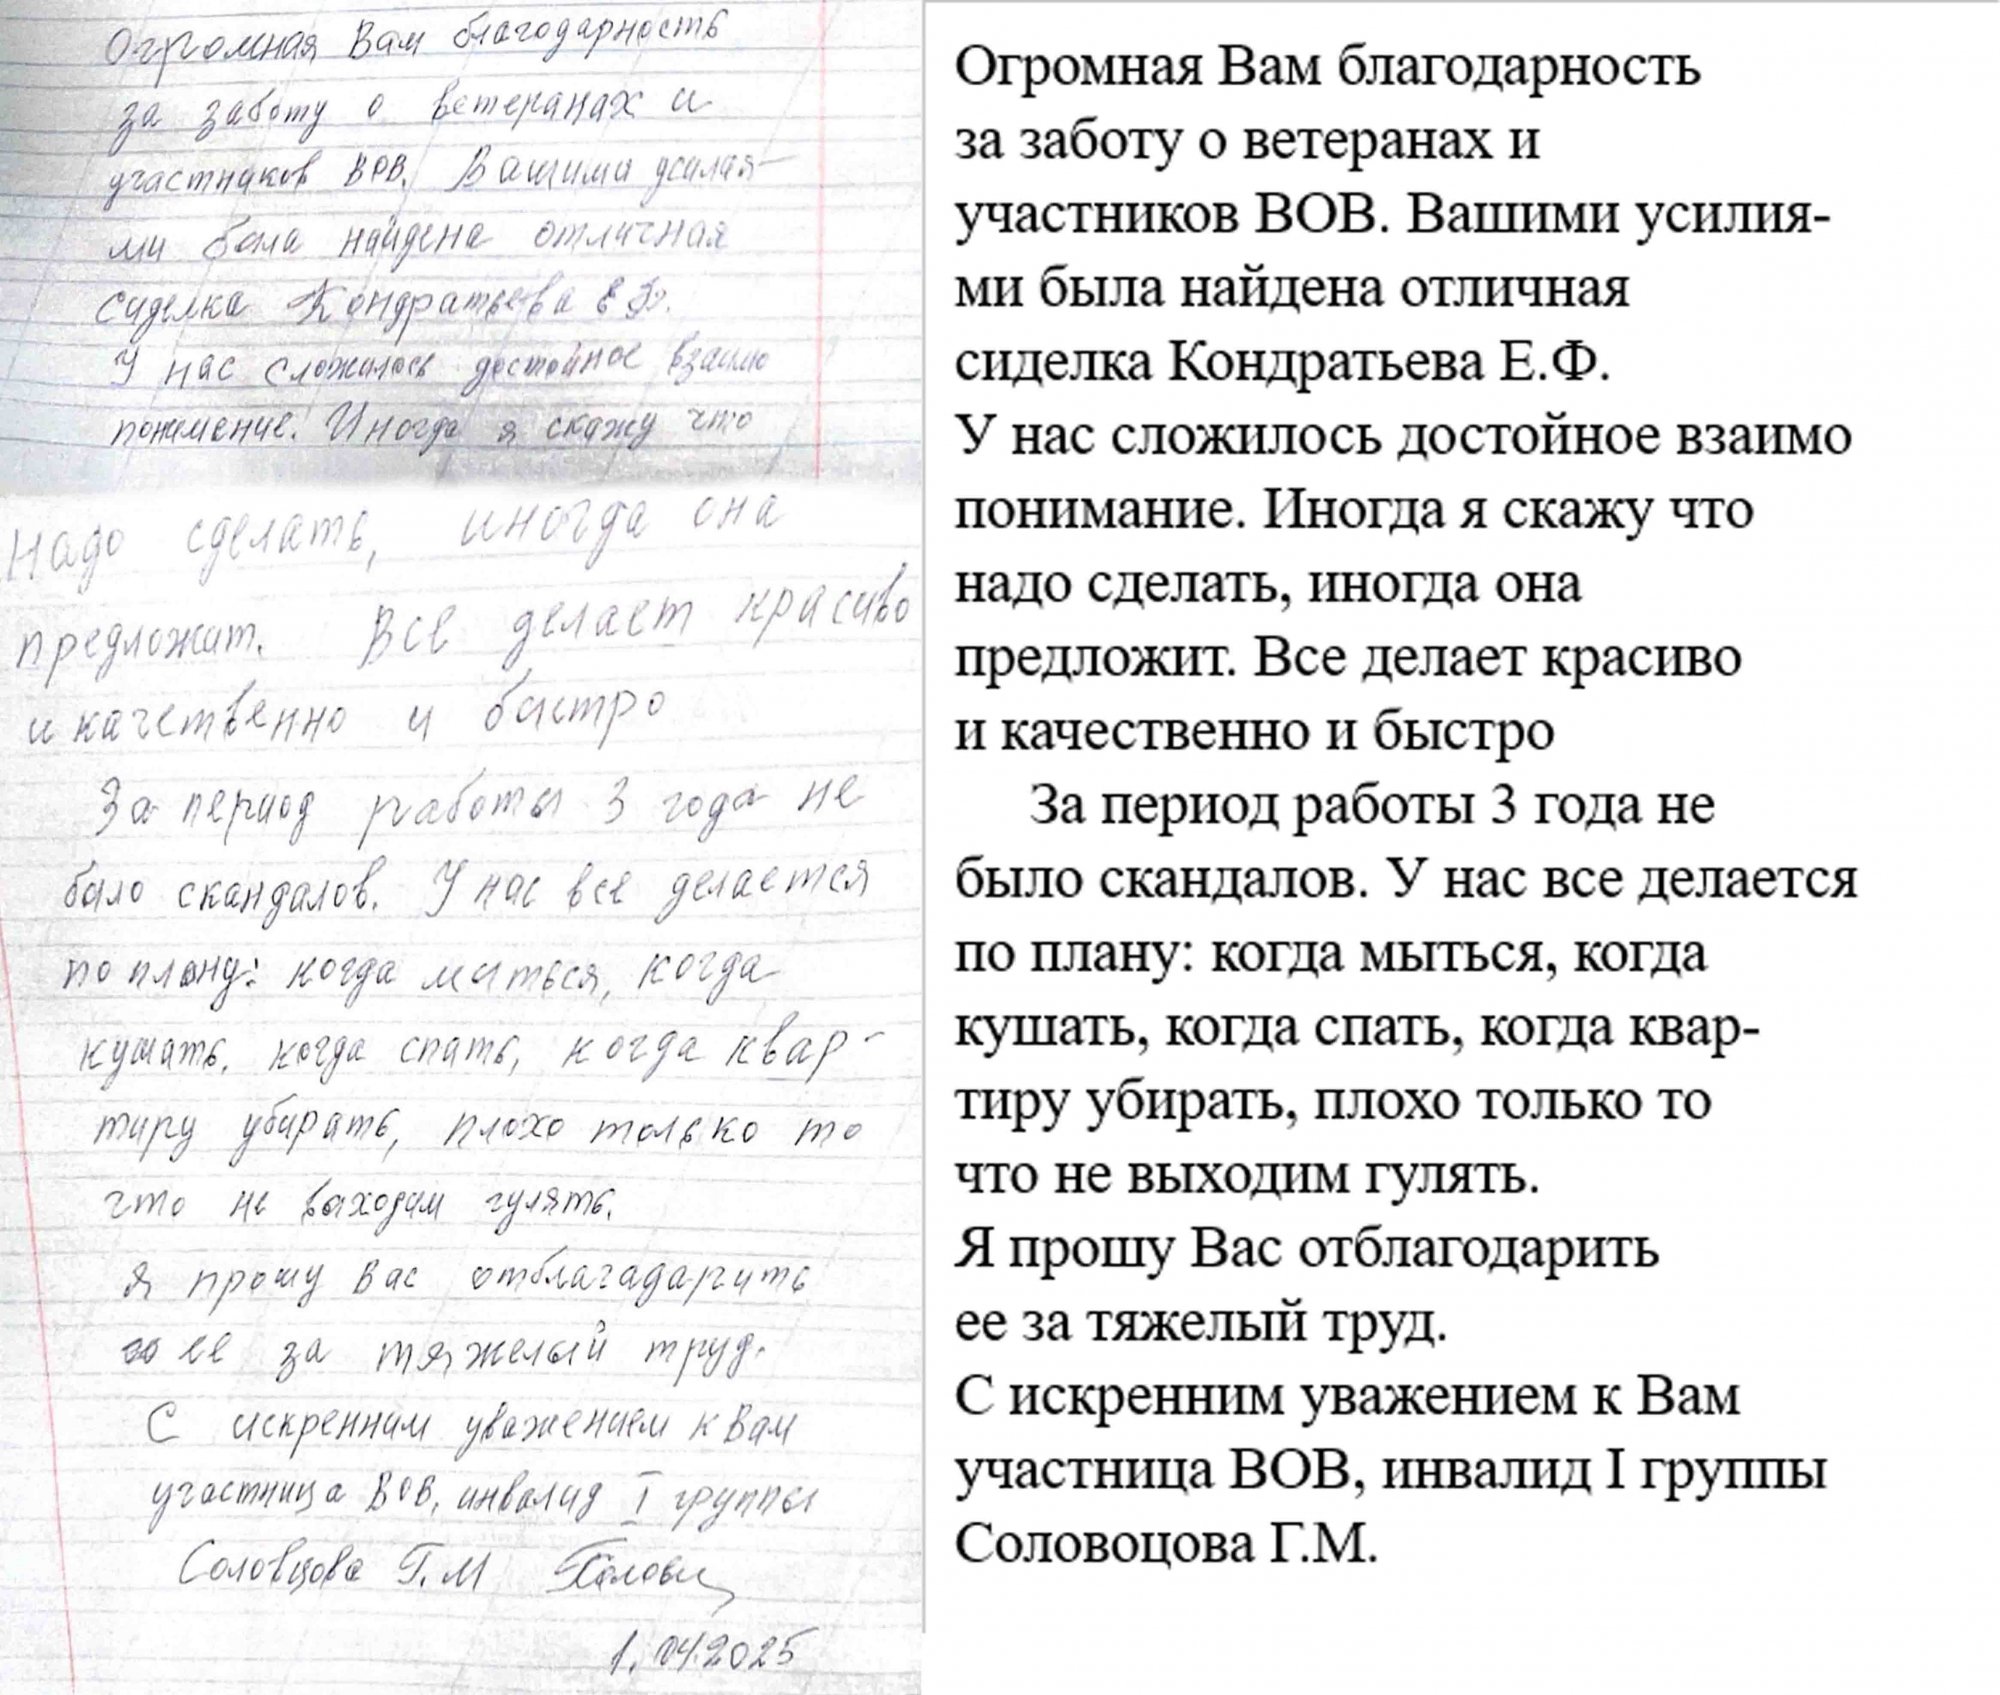 Огромная Вам благодарность
за заботу о ветеранах и
участников ВОВ. Вашими усилия-
ми была найдена отличная
сиделка Кондратьева Е Ф.
У нас сложилось достойное взаимо
понимение. Иногда я скажу что
Надо сделать, иногда она
предложит. Все делает красиво
и качественно и быстро
За период работы 3 года не
было скандалов. У нас все делается
по плану: когда мыться, когда
кушать, когда спать, когда квар-
тиру убирать, плохо только то
что не выходим гулять.
Я прошу Вас отблагадарить
ее за тяжелый труд.
С искренним уважением к Вам
участница ВОВ, инвалид I группы
Соловцова Г.М
1.04.2025
Огромная Вам благодарность
за заботу о ветеранах и
участников ВОВ. Вашими усилия-
ми была найдена отличная
сиделка Кондратьева Е.Ф.
У нас сложилось достойное взаимо
понимание. Иногда я скажу что
надо сделать, иногда она
предложит. Все делает красиво
и качественно и быстро
За период работы 3 года не
было скандалов. У нас все делается
по плану: когда мыться, когда
кушать, когда спать, когда квар-
тиру убирать, плохо только то
что не выходим гулять.
Я прошу Вас отблагодарить
ее за тяжелый труд.
С искренним уважением к Вам
участница ВОВ, инвалид I группы
Соловоцова Г.М.